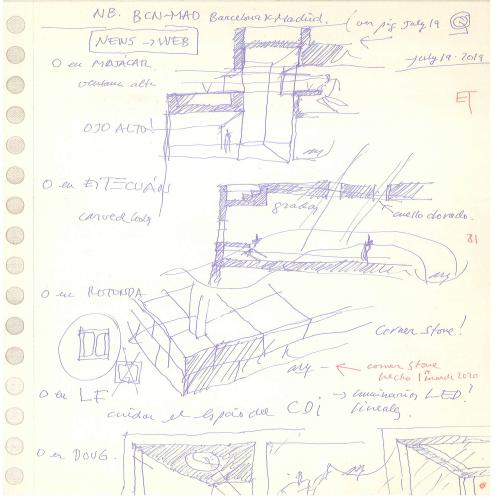 NB. BCN-MAD Barcelona × Madrid. (ver pág July 19
NEWS → WEB
July 19 · 2019
O en MAJÁCAR
ventana alta
ET
OJO ALTO!
O en
carved body
gradas
cuello dorado.
81
O en ROTONDA
corner stone!
← corner stone
hecho 1 2020
O en LF
cuidar el espacio del CDi → luminarias LED?
lineales
O en DOUG.